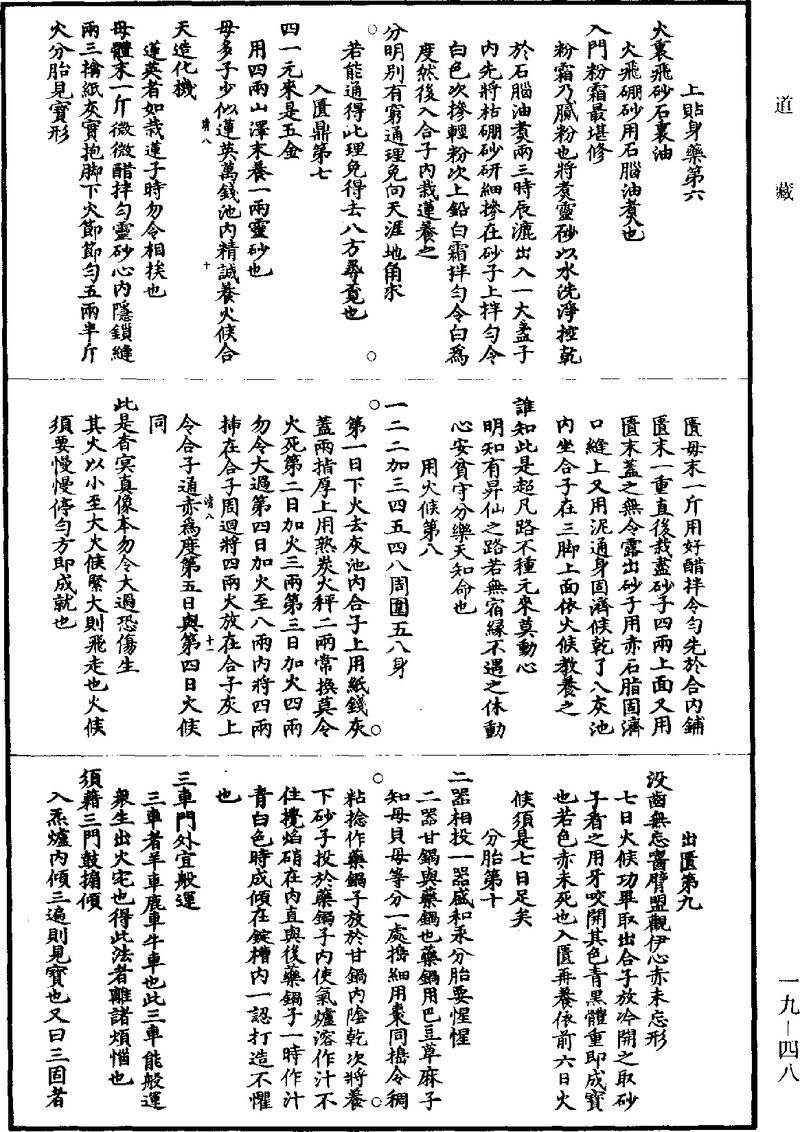 道藏
上貼身藥第六
火裏飛砂石裏油
火飛硼砂用石腦油煑也
入門粉霜最堪修
粉霜乃膩粉也將煑靈砂以水洗淨控乾
於石腦油煑兩三時辰漉出入一大盞子
內先將枯硼砂研細摻在砂子上拌勻令
白色次摻輕粉次上鉛白霜拌勻令白爲
度然後入合子內栽蓮養之
分明別有窮通理免向天涯地角求
若能通得此理免得去八方尋覔也
入匱鼎第七
四一元來是五金
用四兩山澤末養一兩靈砂也
母多子少似蓮英萬錢池內精誠養火候合
清八
十
天造化機
蓮英者如栽蓮子時勿令相挨也
母體末一斤微微醋拌勻靈砂心內隱鎖縫
兩三擒紙灰實抱脚下火節節勻五兩半斤
火分胎見寶形
匱母末一斤用好醋拌令勻先於合內鋪
匱末一重直後栽蓋砂子四兩上面又用
匱末蓋之無令露出砂子用赤石脂固濟
口縫上又用泥通身固濟候乾了入灰池
內坐合子在三脚上面依火候教養之
誰知此是超凡路不種元來莫動心
明知有昇仙之路若無宿緣不遇之休動
心安貧守分樂天知命也
用火候第八
一二二加三四五四八周圍五八身
第一日下火去灰池內合子上用紙錢灰
蓋兩指厚上用熟炭火秤二兩常換莫令
火死第二日加火三兩第三日加火四兩
勿令大過第四日加火至八兩內將四兩
揷在合子周迴將四兩火放在合子灰上
清八
十一
令合子通赤爲度第五日與第四日火候
同
此是杳冥真像本勿令大過恐傷生
其火以小至大火候緊大則飛走也火候
須要慢慢停勻方即成就也
出匱第九
没齒無忘齧臂盟觀伊心赤未忘形
七日火候功畢取出合子放冷開之取砂
子看之用牙咬開其色青黑體重即成寶
也若色赤未死也入匱再養依前六日火
候須是七日足矣
分胎第十
二器相投一器盛和汞分胎要惺惺
二器甘鍋與藥鍋也藥鍋用巴豆草麻子
知母貝母等分一處擣細用棗同擣令稠
粘捻作藥鍋子放於甘鍋內陰乾次將養
下砂子投於藥鍋子內使氣爐溶作汁不
住攪焰硝在內直與後藥鍋子一時作汁
青白色時成傾在錠槽內一認打造不懼
也
三車門外宜般運
三車者羊車鹿車牛車也此三車能般運
衆生出火宅也得此法者離諸煩惱也
須藉三門鼓搧傾
入炁爐內傾三遍則見寶也又曰三固者
一九—四八